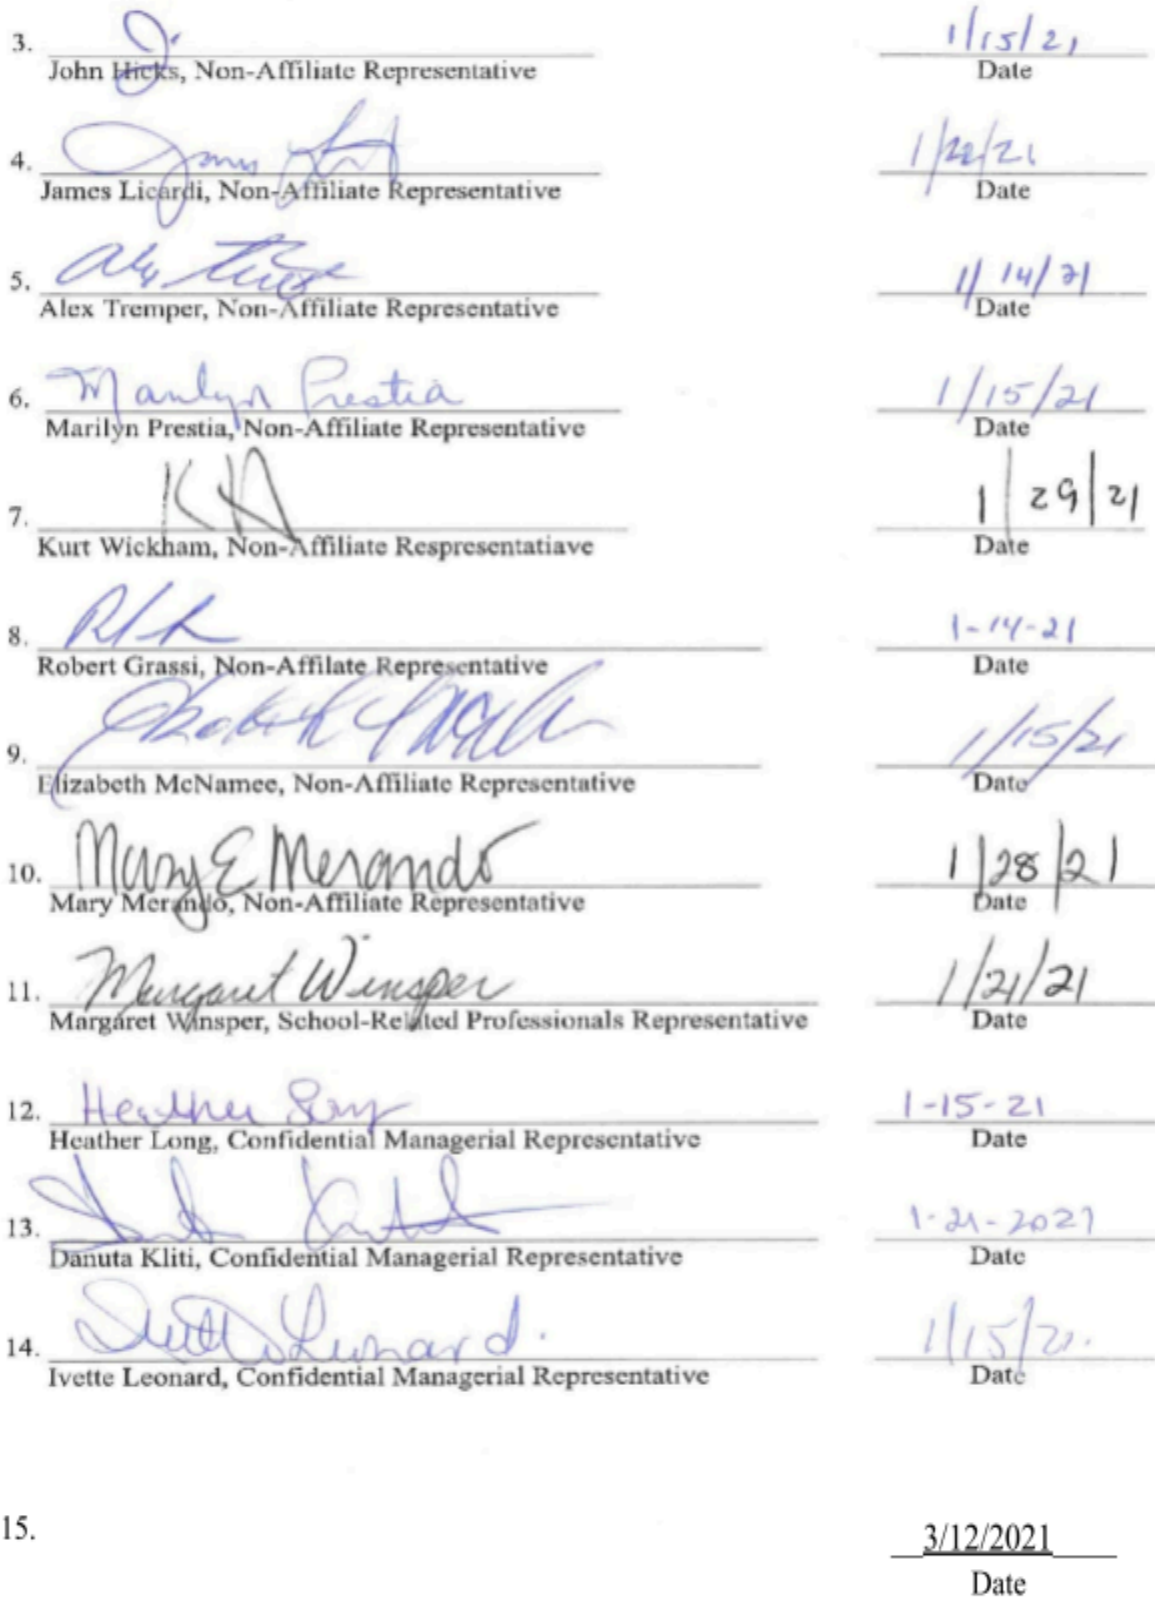 3. J. 1/15/21
John Hicks, Non-Affiliate Representative Date
4. James 1/22/21
James Licardi, Non-Affiliate Representative Date
5. Alex 1/14/21
Alex Tremper, Non-Affiliate Representative Date
6. Marilyn Prestia 1/15/21
Marilyn Prestia, Non-Affiliate Representative Date
7. 1/29/21
Kurt Wickham, Non-Affiliate Respresentatiave Date
8. 1-14-21
Robert Grassi, Non-Affilate Representative Date
9. Elizabeth 1/15/21
Elizabeth McNamee, Non-Affiliate Representative Date
10. Mary E Merando 1/28/21
Mary Merando, Non-Affiliate Representative Date
11. Margaret Winsper 1/21/21
Margaret Winsper, School-Related Professionals Representative Date
12. Heather Long 1-15-21
Heather Long, Confidential Managerial Representative Date
13. 1-21-2021
Danuta Kliti, Confidential Managerial Representative Date
14. Ivette Leonard. 1/15/21.
Ivette Leonard, Confidential Managerial Representative Date
15. 3/12/2021
Date